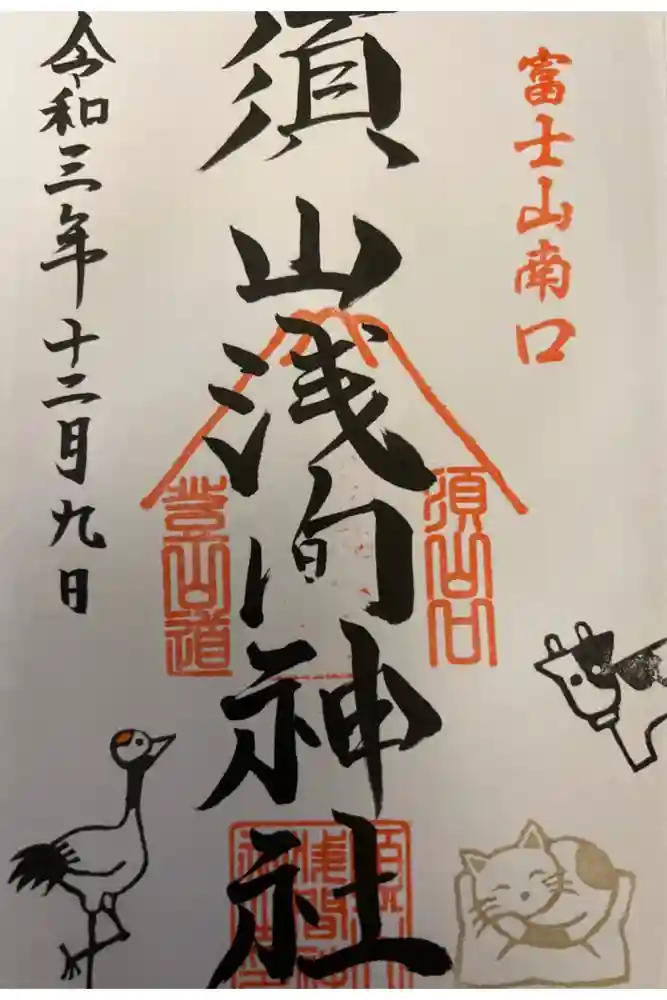 富士山南口
須山浅間神社
須山口
登山道
令和三年十二月九日